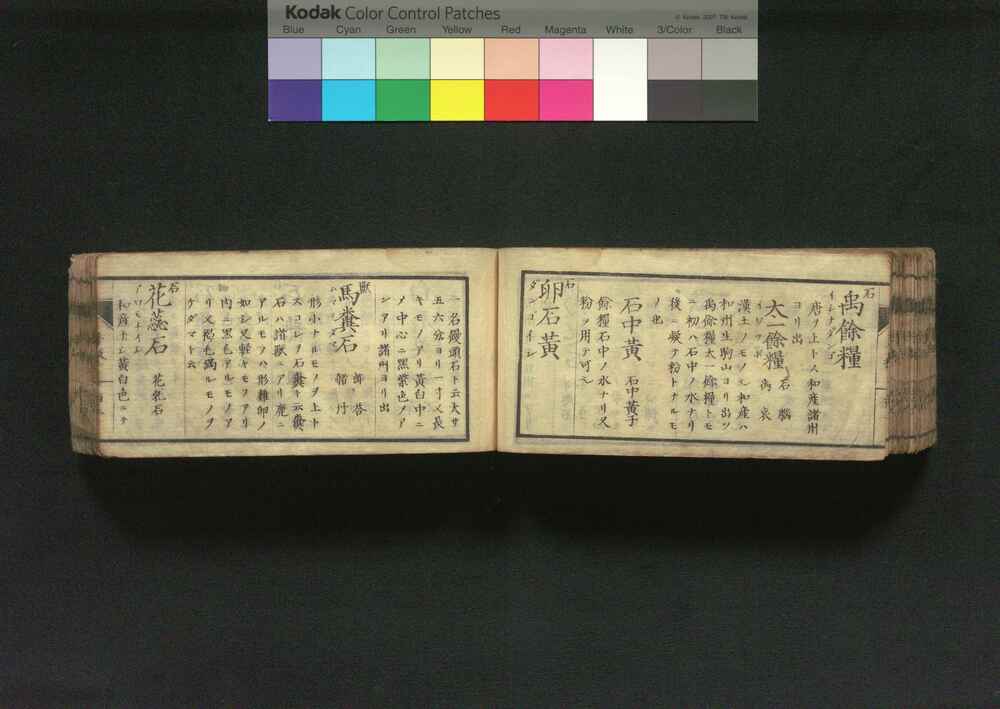 Kodak Color Control Patches
© Kodak, 2007 TM: Kodak
Blue Cyan Green Yellow Red Magenta White 3/Color Black
石
禹餘糧
イシナダンゴ
唐ヲ上トス和産諸州
ヨリ出
太一餘糧
石脳
禹哀
漢土ノモノハ和産ハ
和州生駒山ヨリ出ツ
禹餘糧太一餘糧トモ
ニ初ハ石中ノ水ナリ
後ニ凝テ粉トナルモ
ノ也
石中黄
石中黄子
餘糧石中ノ水ナリ又
粉ヲ用テ可ナリ
石
卵石黄
ダンゴイシ
一名饅頭石ト云大サ
五六分ヨリ一寸又長
キモノアリ黄白中ニ
ノ中心ニ黒紫色ノア
シアリ諸州ヨリ出
獣
馬糞石
鮓荅
形小ナルモノヲ上ト
スコレヲ石糞ト云糞
石ハ諸獣ニアリ鹿ニ
アルモノハ形雞卵ノ
如シ又軽キモノアリ
肉ニ黒毛アルモノア
リ又褐毛満ルモノヲ
ケダマト云
石
花蕊石
花乳石
和産ナシ黄白色ニシテ